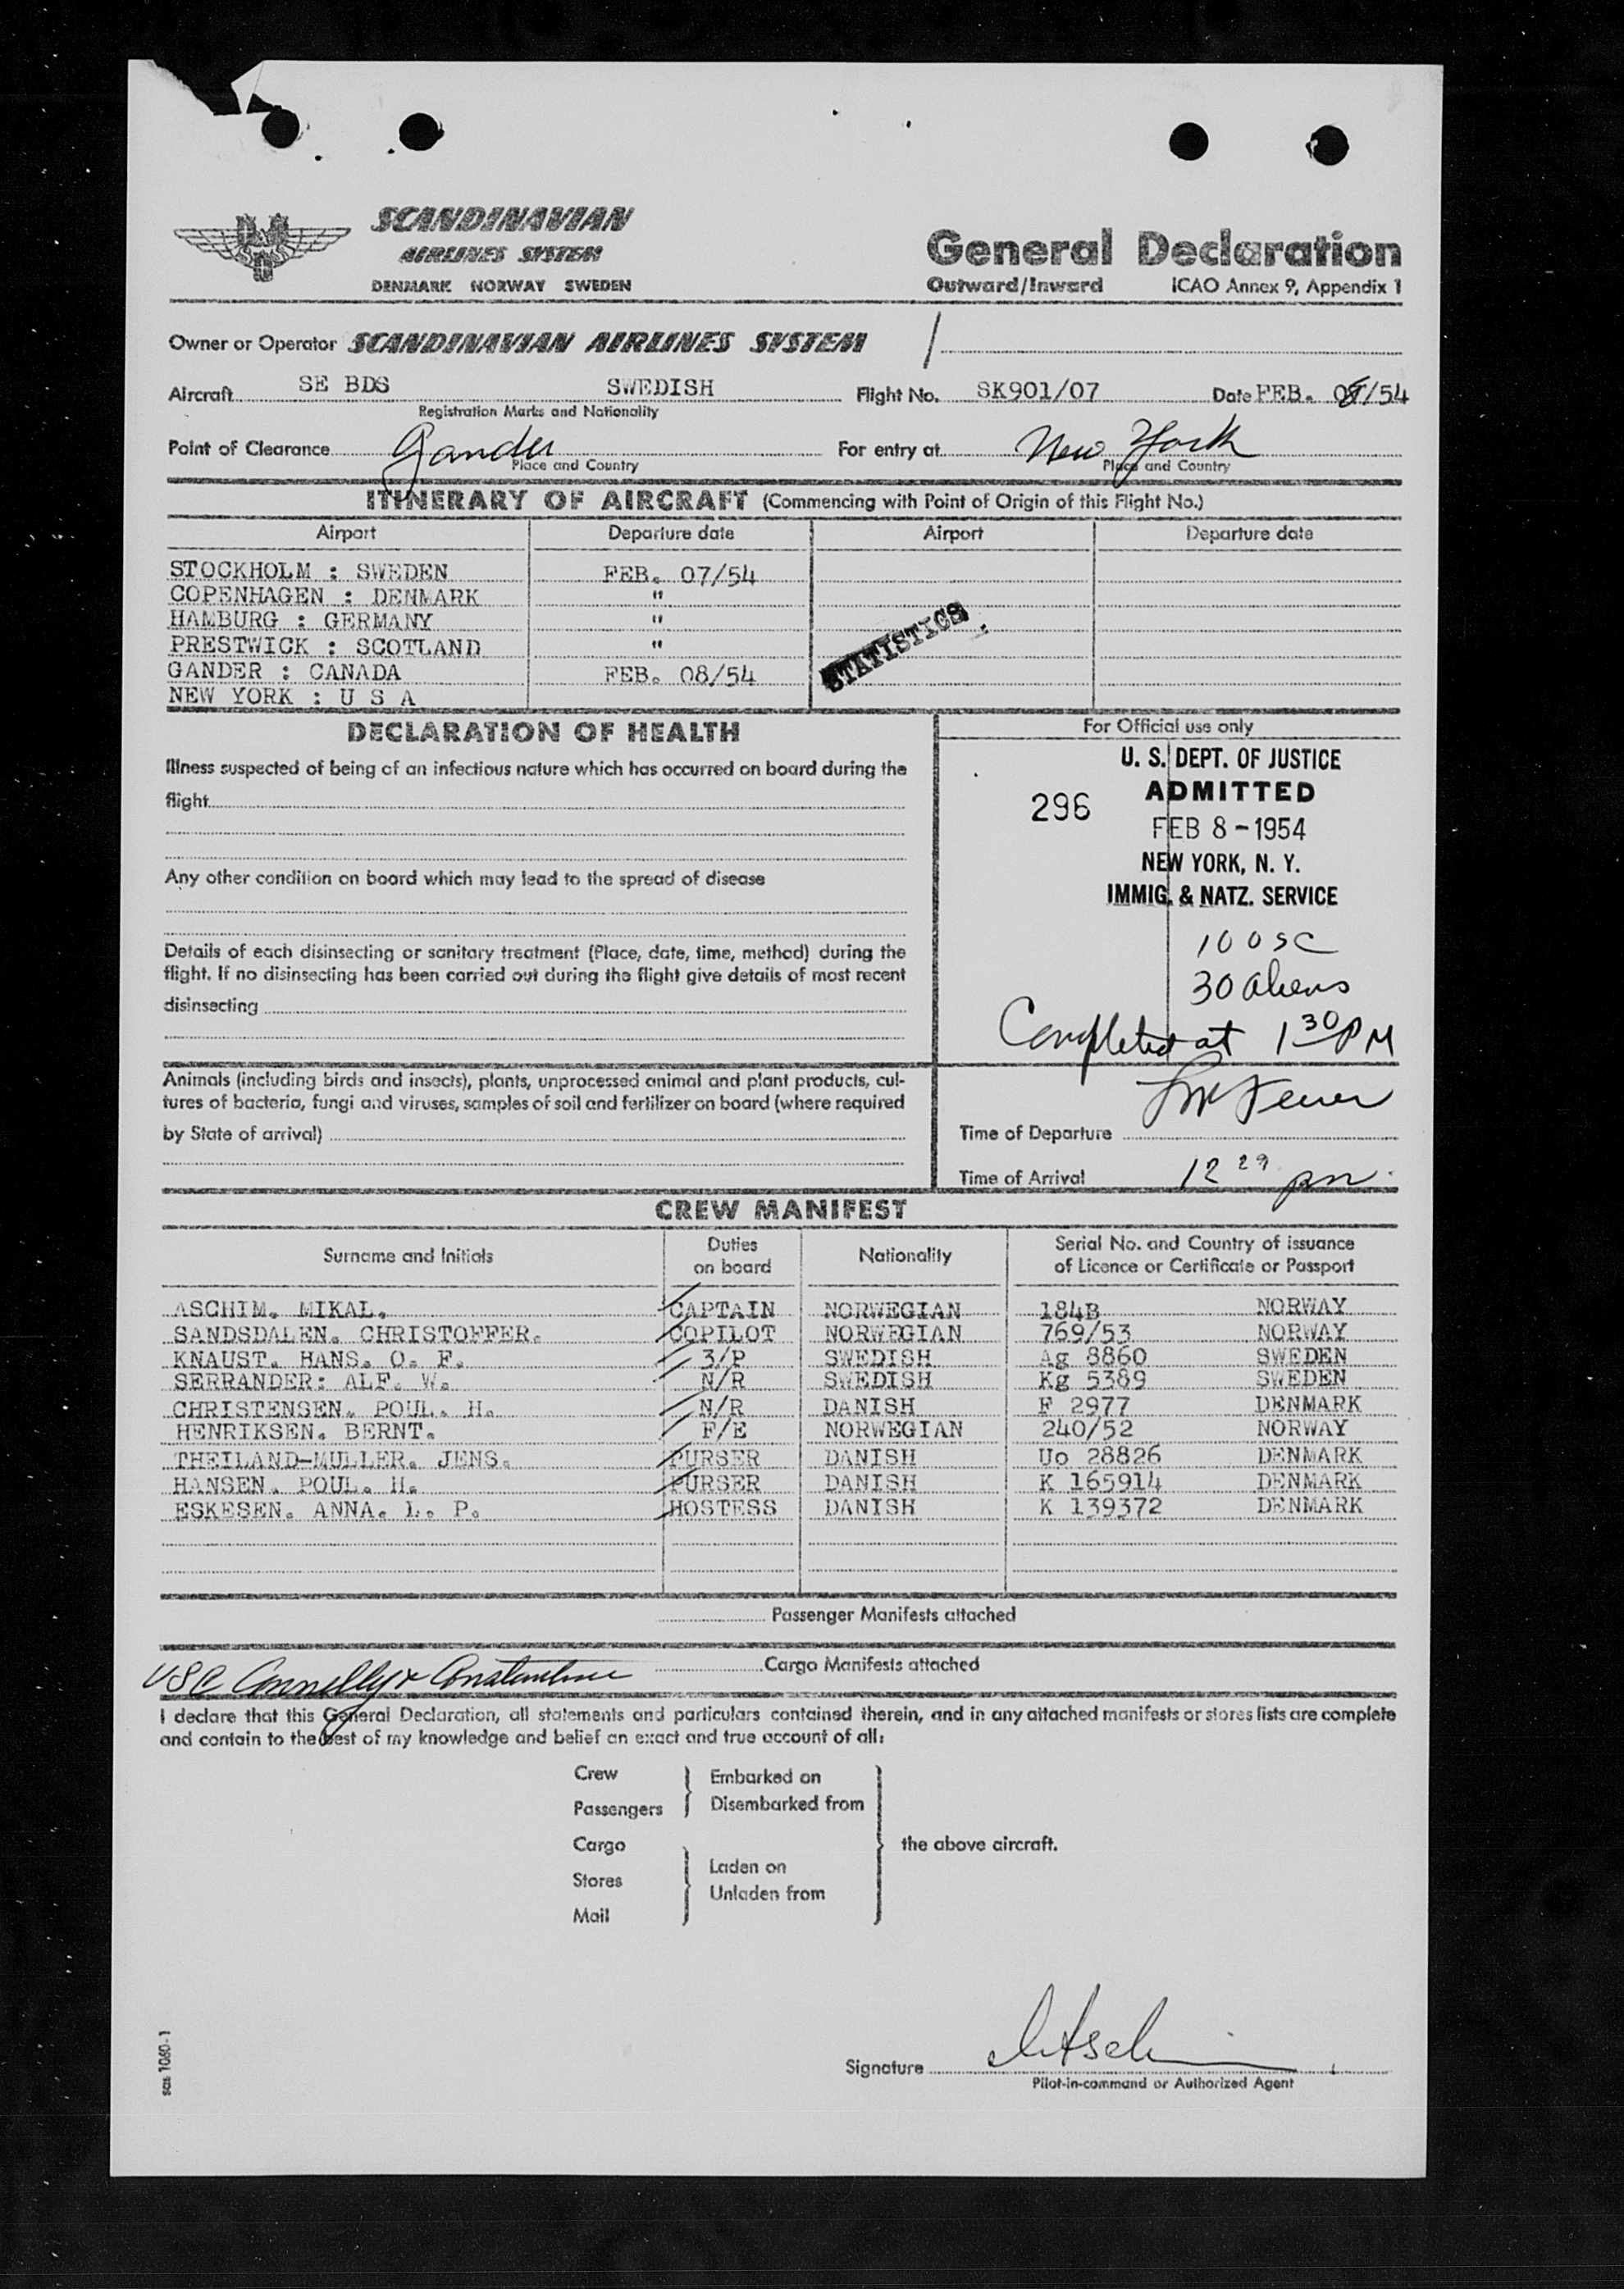 SCANDINAVIAN
AIRLINES SYSTEM
DENMARK NORWAY SWEDEN
General Declaration
Outward/Inward ICAO Annex 9, Appendix 1
Owner or Operator SCANDINAVIAN AIRLINES SYSTEM
Aircraft SE BDS SWEDISH Flight No. SK901/07 Date FEB. 08/54
Registration Marks and Nationality
Point of Clearance Gander For entry at New York
Place and Country Place and Country
ITINERARY OF AIRCRAFT (Commencing with Point of Origin of this Flight No.)
Airport Departure date Airport Departure date
STOCKHOLM : SWEDEN FEB. 07/54
COPENHAGEN : DENMARK "
HAMBURG : GERMANY "
PRESTWICK : SCOTLAND "
GANDER : CANADA FEB. 08/54
NEW YORK : U S A
STATISTICS
DECLARATION OF HEALTH
Illness suspected of being of an infectious nature which has occurred on board during the
flight
Any other condition on board which may lead to the spread of disease
Details of each disinsecting or sanitary treatment (Place, date, time, method) during the
flight. If no disinsecting has been carried out during the flight give details of most recent
disinsecting
Animals (including birds and insects), plants, unprocessed animal and plant products, cul-
tures of bacteria, fungi and viruses, samples of soil and fertilizer on board (where required
by State of arrival)
For Official use only
U. S. DEPT. OF JUSTICE
296 ADMITTED
FEB 8 - 1954
NEW YORK, N. Y.
IMMIG. & NATZ. SERVICE
10 USC
30 aliens
Completed at 1 30 PM
Time of Departure
Time of Arrival 12 29 pm
CREW MANIFEST
Surname and Initials Duties on board Nationality Serial No. and Country of issuance of Licence or Certificate or Passport
ASCHIM. MIKAL. CAPTAIN NORWEGIAN 184B NORWAY
SANDSDALEN. CHRISTOFFER. COPILOT NORWEGIAN 769/53 NORWAY
KNAUST. HANS. O. F. 3/P SWEDISH Ag 8860 SWEDEN
SERRANDER: ALF. W. N/R SWEDISH Kg 5389 SWEDEN
CHRISTENSEN. POUL. H. N/R DANISH F 2977 DENMARK
HENRIKSEN. BERNT. F/E NORWEGIAN 240/52 NORWAY
THEILAND-MULLER. JENS. PURSER DANISH Uo 28826 DENMARK
HANSEN. POUL. H. PURSER DANISH K 165914 DENMARK
ESKESEN. ANNA. L. P. HOSTESS DANISH K 139372 DENMARK
Passenger Manifests attached
Cargo Manifests attached
USC Connelly & Constantine
I declare that this General Declaration, all statements and particulars contained therein, and in any attached manifests or stores lists are complete
and contain to the best of my knowledge and belief an exact and true account of all:
Crew
Passengers
Embarked on
Disembarked from
Cargo
Stores
Mail
Laden on
Unladen from
the above aircraft.
Signature
Pilot-in-command or Authorized Agent
sas 1060-1